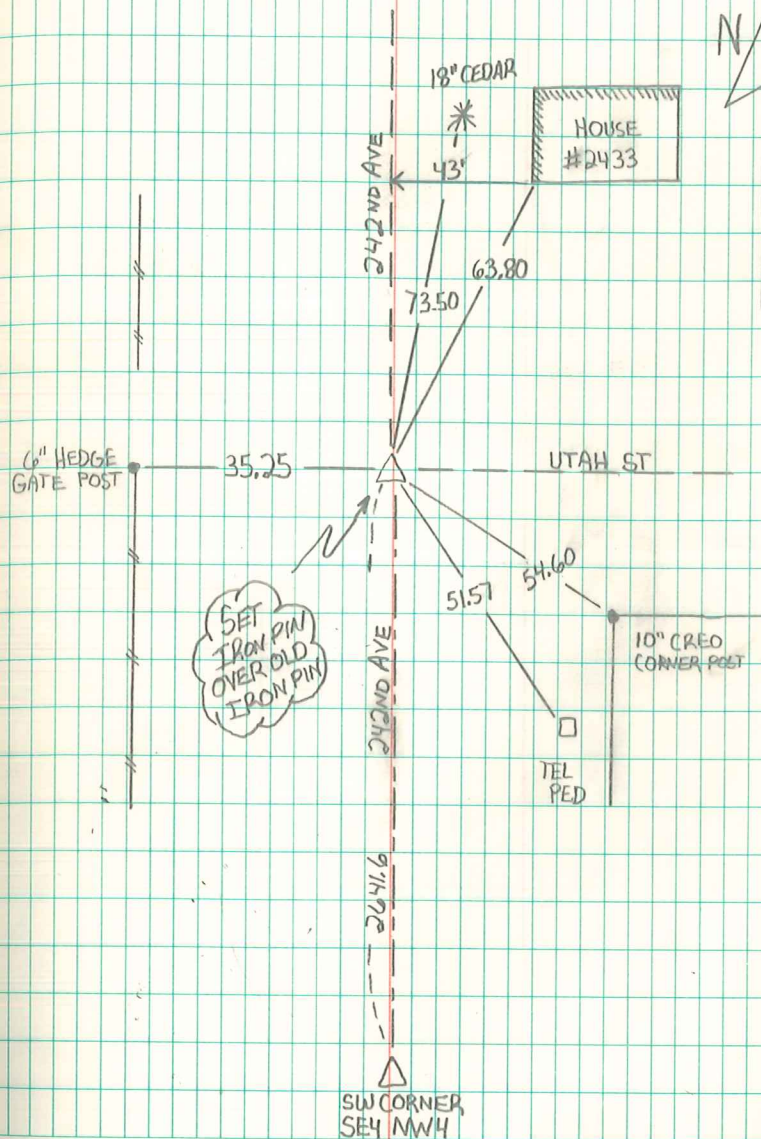 N
18" CEDAR
HOUSE
#2433
43'
242ND AVE
63.80
73.50
6" HEDGE
GATE POST
35.25
UTAH ST
54.60
51.57
SET
IRON PIN
OVER OLD
IRON PIN
10" CREO
CORNER POST
242ND AVE
TEL
PED
2641.6
SW CORNER
SE4 NW4